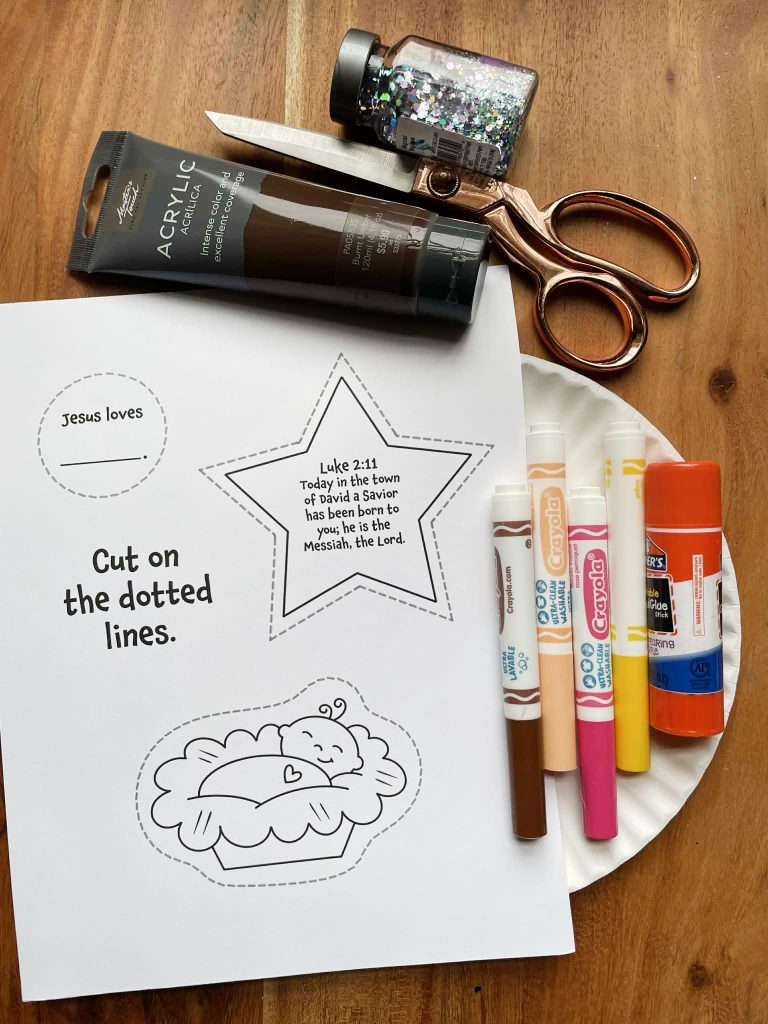 ACRYLIC
ACRÍLICA
Intense color and
excellent coverage
PAOS
Burnt Umber
120ml
$5.99
Jesus loves
.
Luke 2:11
Today in the town
of David a Savior
has been born to
you; he is the
Messiah, the Lord.
Cut on
the dotted
lines.
Crayola.com
ULTRA
LAVABLE
Crayola
ULTRA-CLEAN
WASHABLE
Crayola
ULTRA-CLEAN
WASHABLE
Glue
Stick
AP